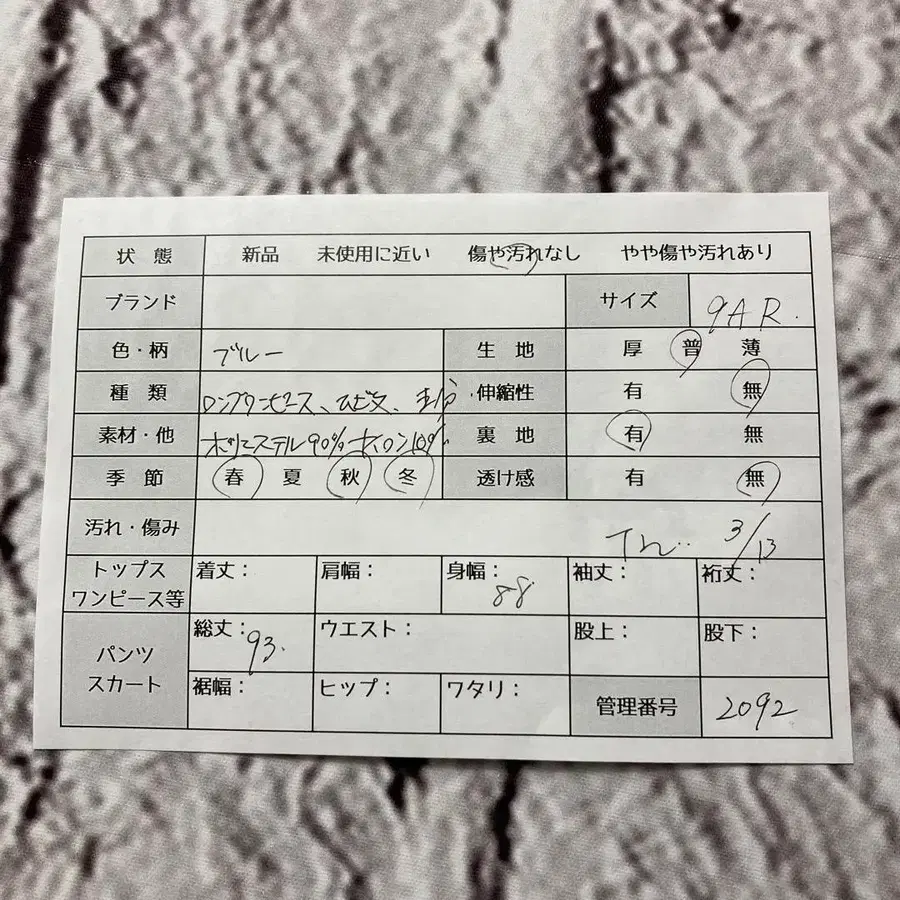 状 態 新品 未使用に近い 傷や汚れなし やや傷や汚れあり
ブランド サイズ 9AR.
色・柄 ブルー 生 地 厚 普 薄
種 類 ロングワンピース、ひざ丈、 伸縮性 有 無
素材・他 ポリエステル90% ナイロン10% 裏 地 有 無
季 節 春 夏 秋 冬 透け感 有 無
汚れ・傷み 3/13
トップス
ワンピース等 着丈: 肩幅: 身幅: 88 袖丈: 裄丈:
パンツ
スカート 総丈: 93. ウエスト: 股上: 股下:
裾幅: ヒップ: ワタリ: 管理番号 2092